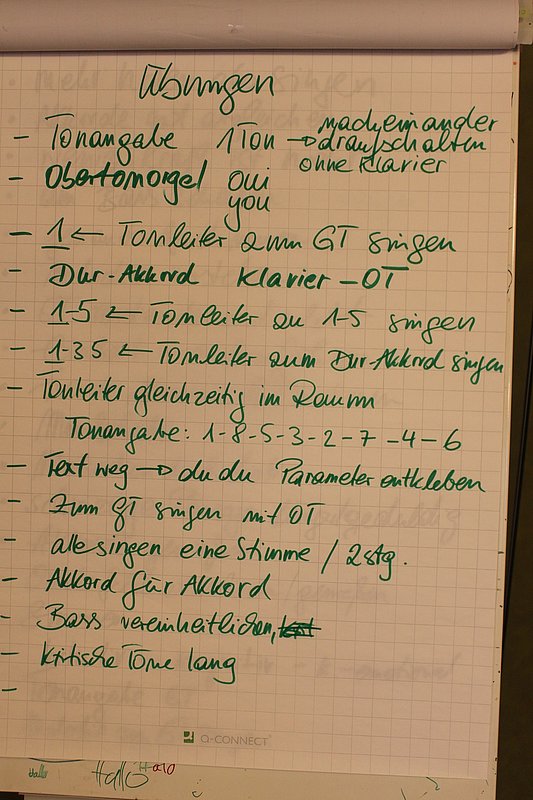 Übungen
– Tonangabe 1 Ton → nacheinander
draufschalten
ohne Klavier
– Obertonorgel oui
you
– 1 ← Tonleiter zum GT singen
– Dur-Akkord Klavier – OT
– 1-5 ← Tonleiter zu 1-5 singen
– 1-35 ← Tonleiter zum Dur-Akkord singen
– Tonleiter gleichzeitig im Raum
Tonangabe: 1-8-5-3-2-7-4-6
– Text weg → du du Parameter entkleben
– Zum GT singen mit OT
– alle singen eine Stimme / 2stg.
– Akkord für Akkord
– Bass vereinheitlichen,
– kritische Töne lang
–
Q-CONNECT
Hallo Hallo